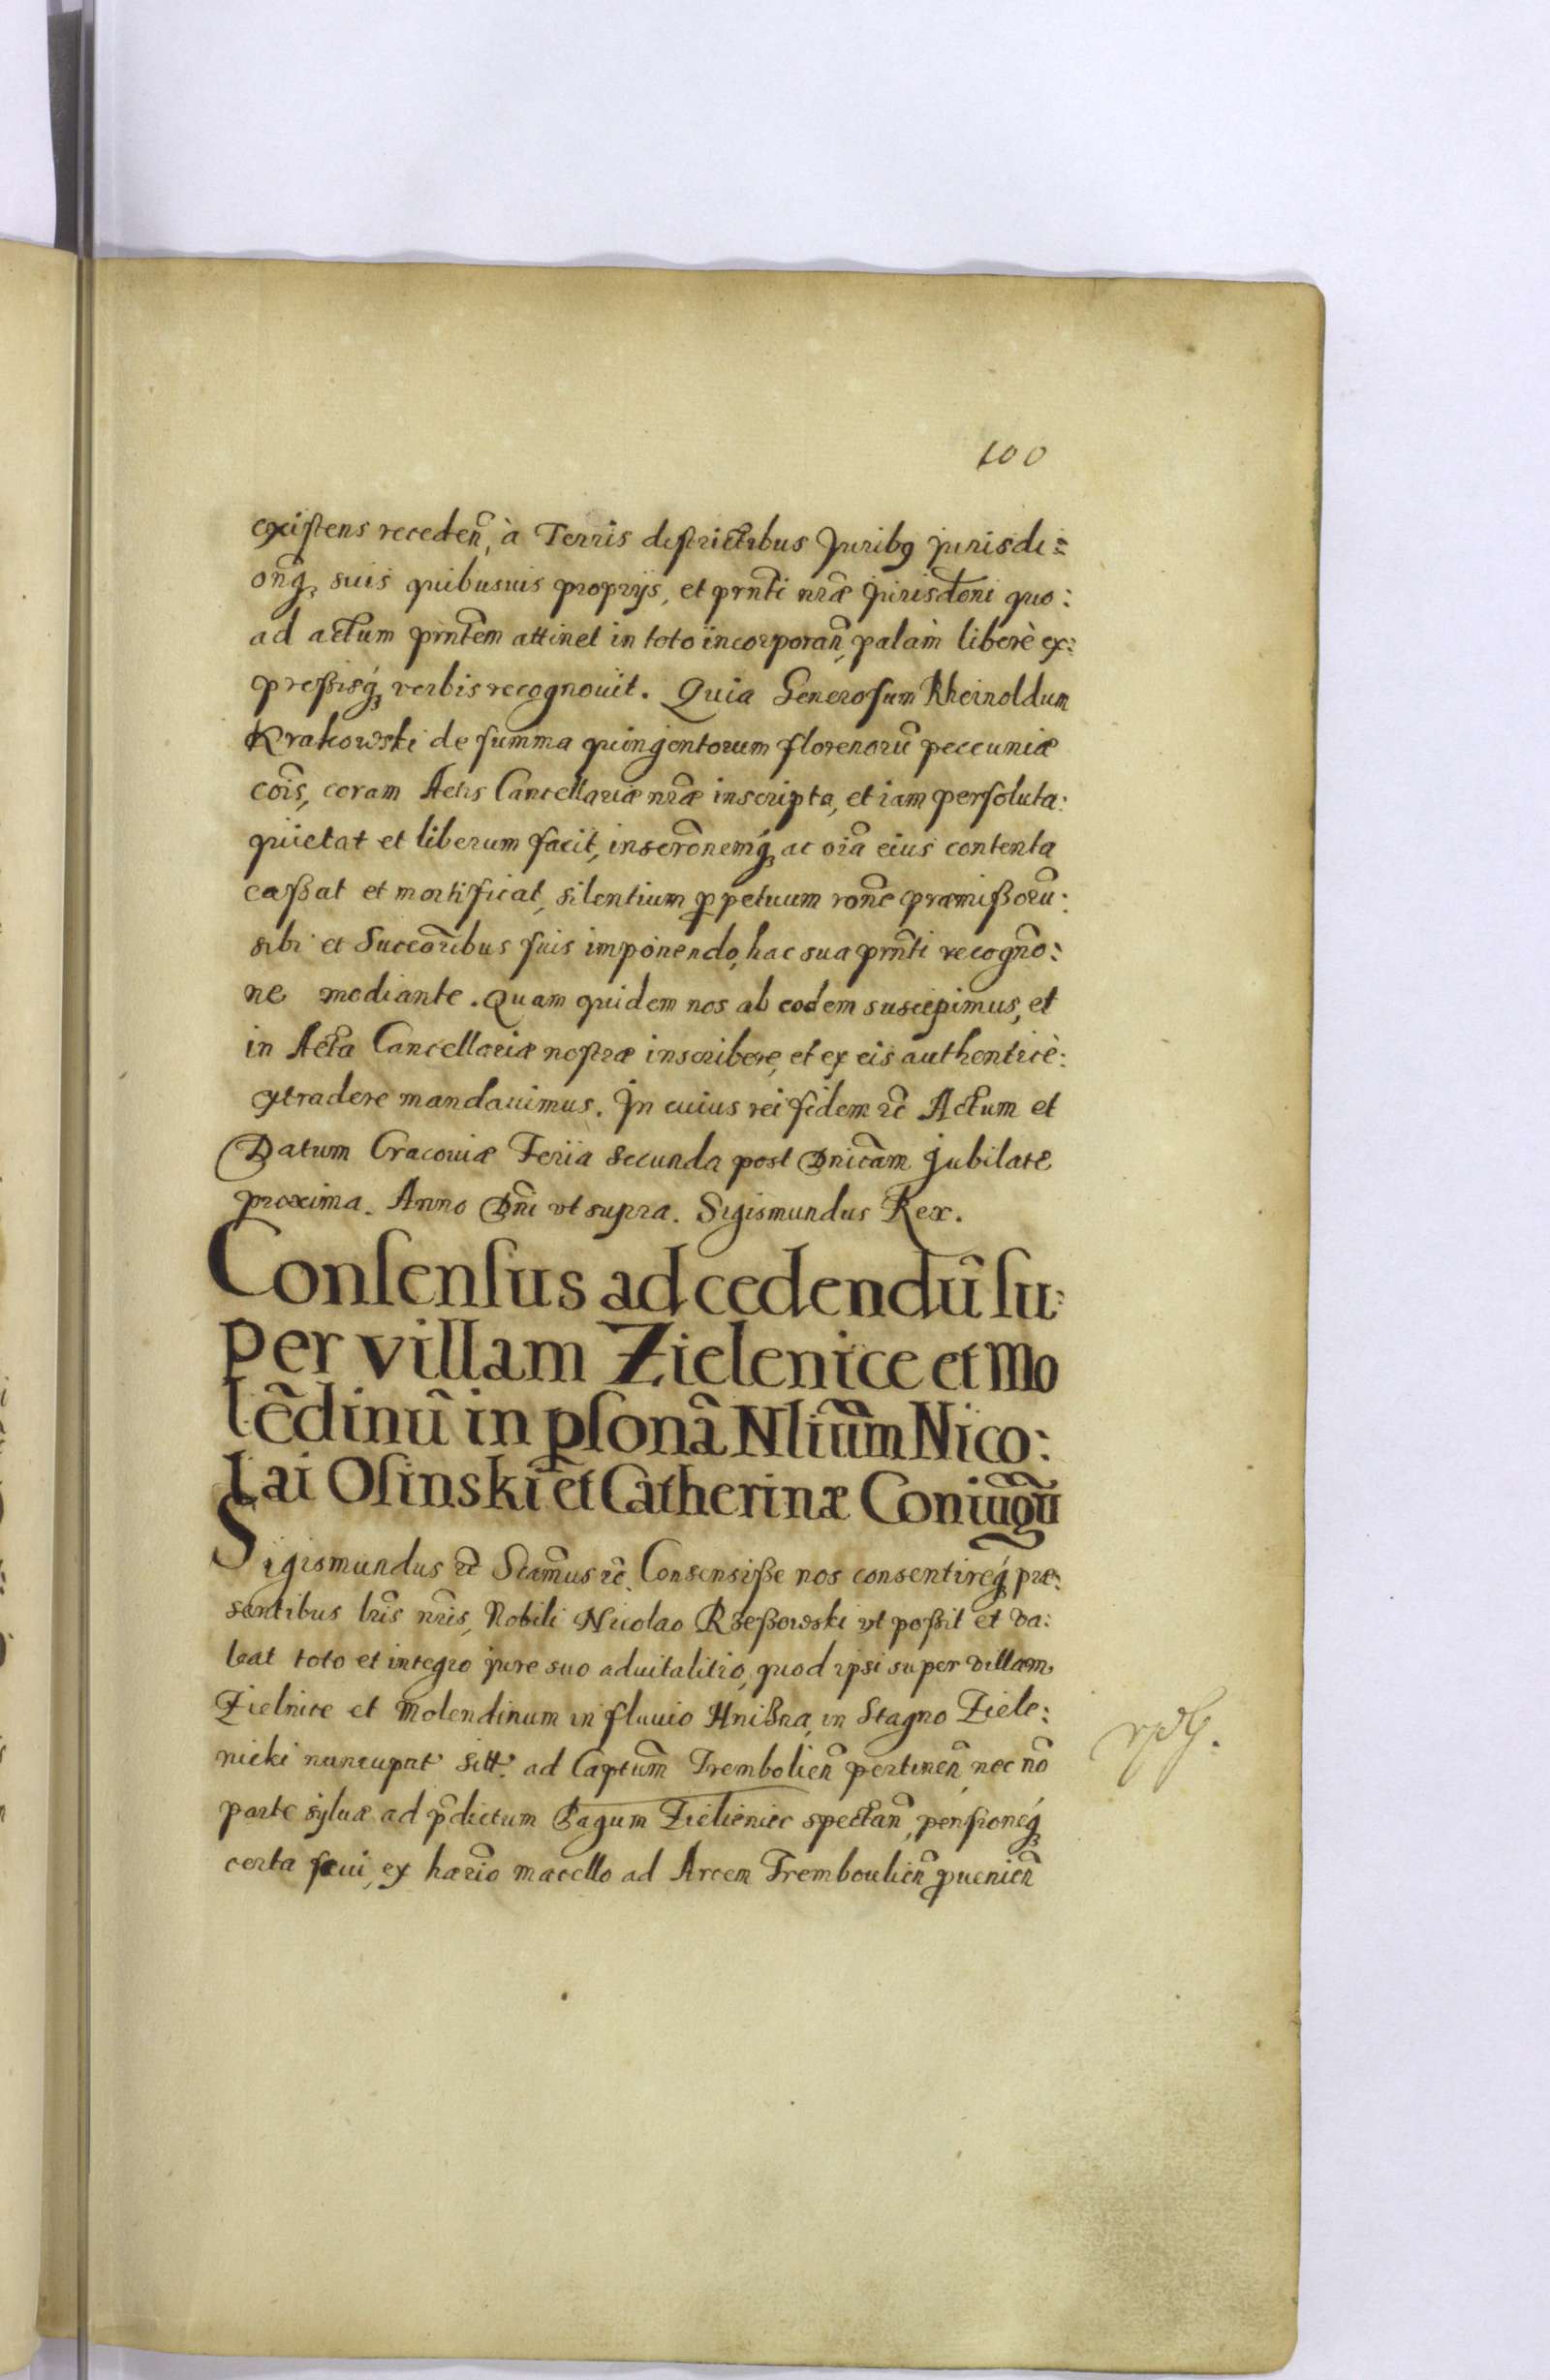 100
existens receden̄, à Terris districtibus Juribꝰ jurisdi=
onq̃ꝫ suis quibusuis proprijs, et prnt̃i nr̃æ Jurisdc̃oni quo:
ad actum prnt̃em attinet in toto incorporan̄, palàm liberè ex:
preßisq́ꝫ verbis recognouit. Quia Generosum Rheinoldum
Krakowski de summa quingentorum florenorũ peccuniæ
cõis, coram Actis Cancellariæ nr̃æ inscripta, et iam persoluta:
quietat et liberum facit, inscrõnemq́ꝫ ac oĩa eius contenta
caßat et mortificat, silentium ꝑpetuum rõne præmißorũ:
sibi et Succõribus suis imponendo, hac sua prnt̃i recogñõ:
ne mediante. Quam quidem nos ab eodem suscepimus, et
in Acta Cancellariæ nostræ inscribere, et ex eis authenticè:
extradere mandauimus. In cuius rei fidem ꝛc̃ Actum et
Datum Cracouiæ Feria Secunda post Dnicãm Jubilate
proxima. Anno Dñi vt supra. Sigismundus Rex.
Consensus ad cedendũ su:
per villam Zielenice et Mo
lẽdinũ in ꝑsonã Nliũm Nico:
lai Osinski et Catherinæ Coniũgũ
Sigismundus ꝛc̃ Scãmus ꝛc̃. Consensiße nos consentireq́ꝫ præ:
sentibus lr̃is nr̃is, Nobili Nicolao Rzeßowski vt poßit et va:
leat toto et integro jure suo aduitalitio, quod ipsi super villam
Zielnice et Molendinum in fluuio Hnißna, in Stagno Ziele:
nicki nuncupat sitt. ad Captum̃ Trembolien̄ pertinen̄, nec nõ
parte syluæ ad p̃dictum Pagum Zieleniec spectan̄, pensioneq́ꝫ
certa seui, ex hærio macello ad Arcem Tremboulien̄ ꝓuenien̄